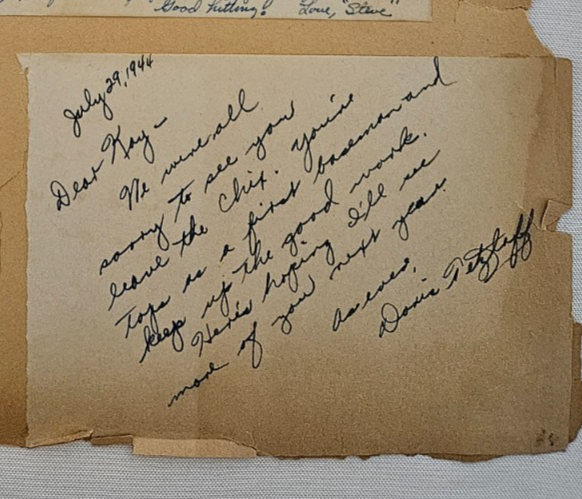 Good hitting! Love, "Steve"
July 29, 1944
Dear Kay-
We were all
sorry to see you
leave the Chix. You're
tops as a first baseman and
keep up the good work.
Here's hoping I'll see
more of you next year.
As ever,
Doris Tetzlaff